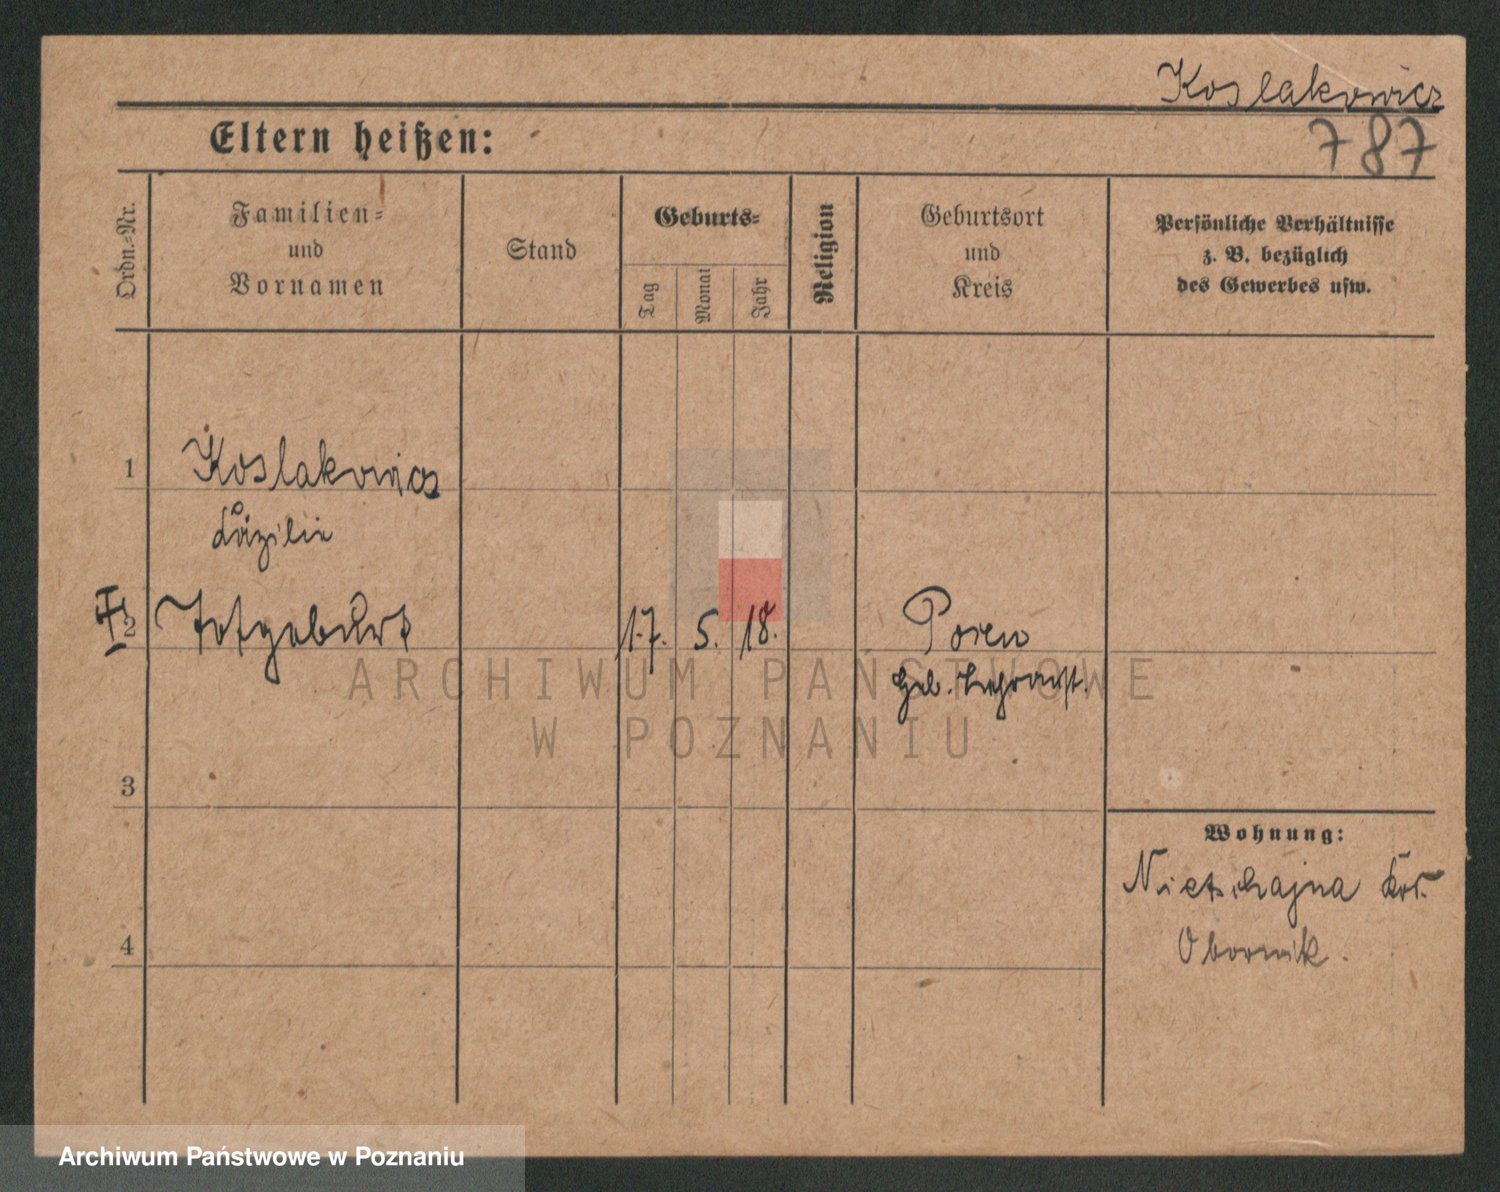 Koslakowicz
Eltern heißen:
787
Ordn.-Nr.
Familien-
und
Vornamen
Stand
Geburts-
Tag
Monat
Jahr
Religion
Geburtsort
und
Kreis
Persönliche Verhältnisse
z. B. bezüglich
des Gewerbes usw.
1 Koslakowicz
Cäzilie
2 Totgeburt 17. 5. 18. Posen
Geb.
3
Wohnung:
Nietschajna Krs.
Obornik.
4
ARCHIWUM PAŃSTWOWE
W POZNANIU
Archiwum Państwowe w Poznaniu